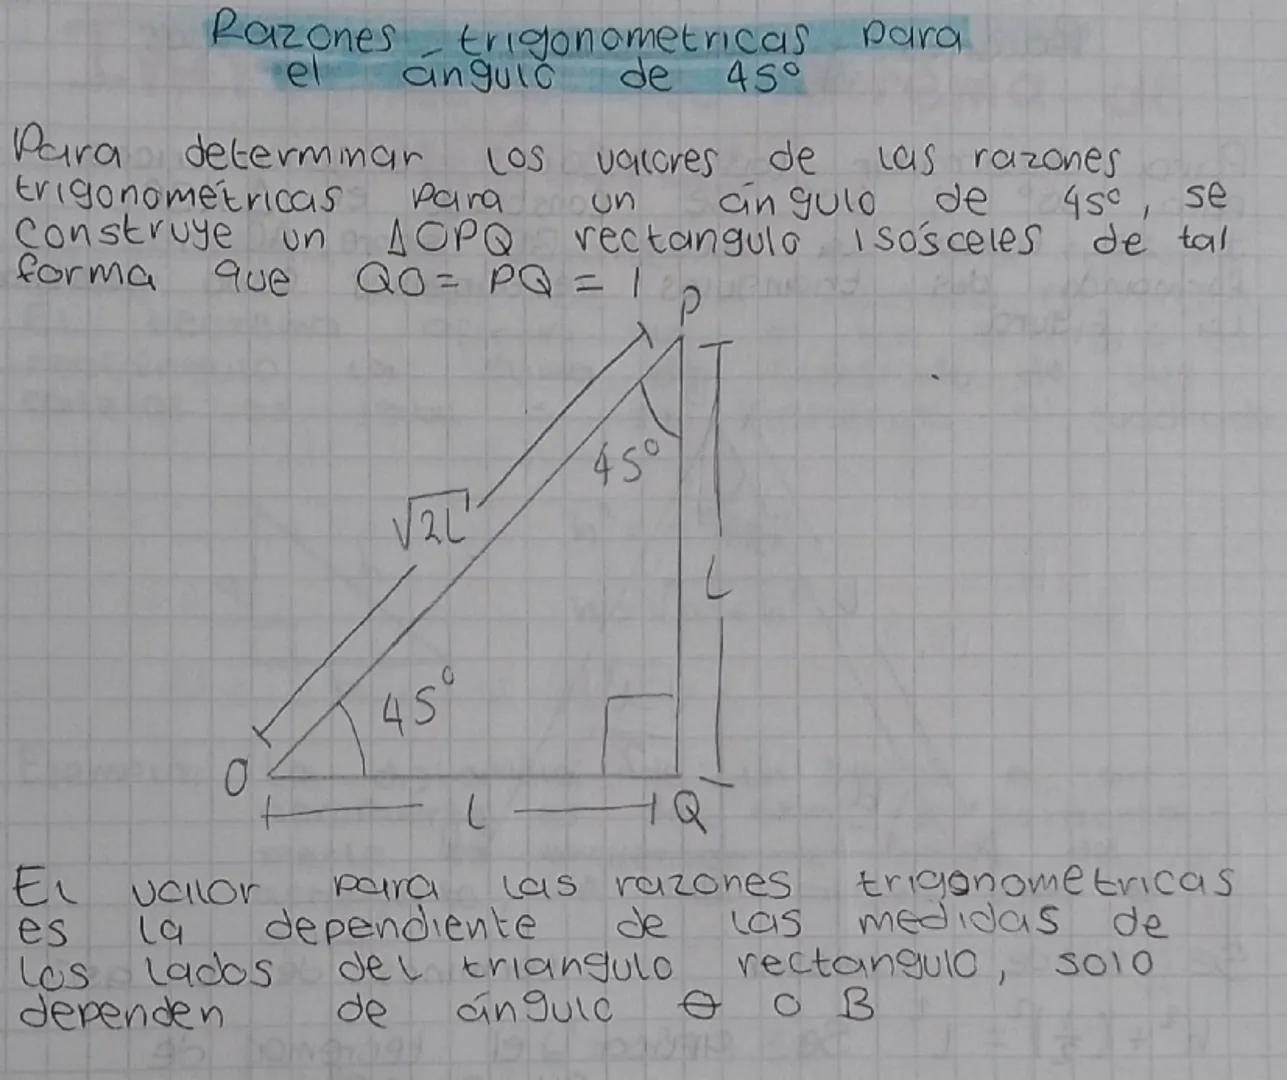 Razones trigonometricas para
el ángulo de 45°
Para determinar los valores de las razones
trigonométricas para un ángulo de 45°, se
construye un ΔOPQ rectangulo isósceles de tal
forma que QO = PQ = 1
P
45°
√2L
L
45°
O
L
Q
El valor para las razones trigonometricas
es la dependiente de las medidas de
los lados del triangulo rectangulo, solo
dependen de ángulo θ o B